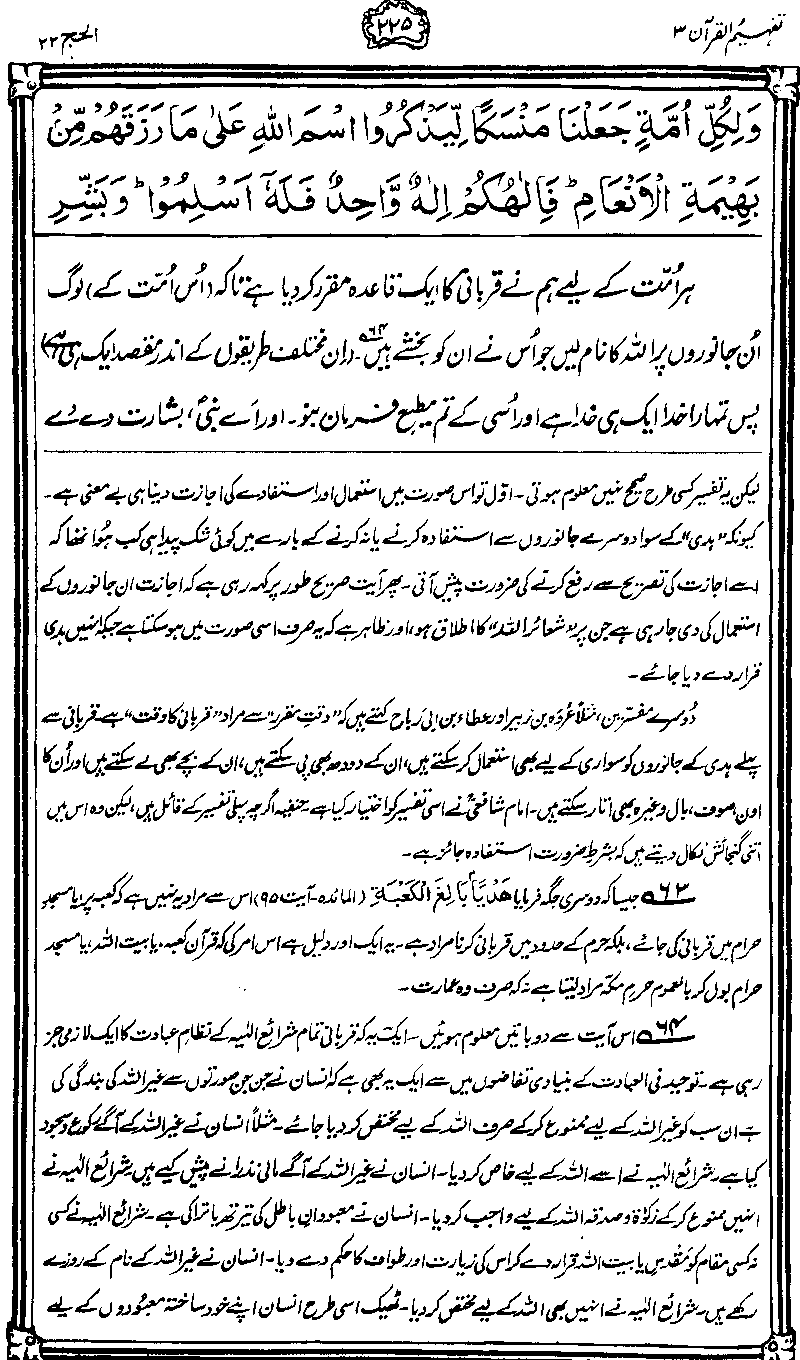 تفہیم القرآن ۳
۲۲۵
الحج ۲۲
وَلِكُلِّ اُمَّةٍ جَعَلْنَا مَنْسَكًا لِّيَذْكُرُوا اسْمَ اللّٰهِ عَلٰى مَا رَزَقَهُمْ مِّنْۢ
بَهِيْمَةِ الْاَنْعَامِ ؕ فَاِلٰهُكُمْ اِلٰهٌ وَّاحِدٌ فَلَهٗۤ اَسْلِمُوْا ؕ وَبَشِّرِ
ہر اُمّت کے لیے ہم نے قربانی کا ایک قاعدہ مقرر کر دیا ہے تاکہ (اُس اُمّت کے) لوگ
اُن جانوروں پر اللہ کا نام لیں جو اُس نے ان کو بخشے ہیں۔۶۴ (اِن مختلف طریقوں کے اندر مقصد ایک ہی ہے)
پس تمہارا خدا ایک ہی خدا ہے اور اُسی کے تم مطیعِ فرمان بنو۔ اور اَے نبیؐ، بشارت دے دے
لیکن یہ تفسیر کسی طرح صحیح نہیں معلوم ہوتی۔ اوّل تو اس صورت میں استعمال اور استفادے کی اجازت دینا ہی بے معنی ہے۔
کیونکہ ”ہدی“ کے سوا دوسرے جانوروں سے استفادہ کرنے یا نہ کرنے کے بارے میں کوئی شک پیدا ہی کب ہُوا تھا کہ
اسے اجازت کی تصریح سے رفع کرنے کی ضرورت پیش آتی۔ پھر آیت صریح طور پر کہہ رہی ہے کہ اجازت ان جانوروں کے
استعمال کی دی جا رہی ہے جن پر ”شعائر اللہ“ کا اطلاق ہو، اور ظاہر ہے کہ یہ صرف اسی صورت میں ہو سکتا ہے جبکہ انہیں ہدی
قرار دے دیا جائے۔
دُوسرے مفسّرین، مثلاً عُروَہ بن زبیر اور عطاء بن ابی رباح کہتے ہیں کہ ”وقتِ مقرر“ سے مراد ”قربانی کا وقت“ ہے۔ قربانی سے
پہلے ہدی کے جانوروں کو سواری کے لیے بھی استعمال کر سکتے ہیں، ان کے دودھ بھی پی سکتے ہیں، ان کے بچے بھی لے سکتے ہیں اور اُن کا
اون، صوف، بال وغیرہ بھی اُتار سکتے ہیں۔ امام شافعیؒ نے اسی تفسیر کو اختیار کیا ہے۔ حنفیہ اگرچہ پہلی تفسیر کے قائل ہیں، لیکن وہ اس میں
اتنی گنجائش نکال دیتے ہیں کہ بشرطِ ضرورت استفادہ جائز ہے۔
۶۳ جیسا کہ دوسری جگہ فرمایا هَدْيًۢا بَالِغَ الْكَعْبَةِ (المائدہ۔ آیت ۹۵) اس سے مراد یہ نہیں ہے کہ کعبہ پر، یا مسجدِ
حرام میں قربانی کی جائے، بلکہ حرم کے حدود میں قربانی کرنا مراد ہے۔ یہ ایک اور دلیل ہے اس امر کی کہ قرآن کعبہ، یا بیت اللہ، یا مسجد
حرام بول کر بالعموم حرمِ مکّہ مراد لیتا ہے نہ کہ صرف وہ عمارت۔
۶۴ اس آیت سے دو باتیں معلوم ہوئیں۔ ایک یہ کہ قربانی تمام شرائعِ الٰہیہ کے نظامِ عبادت کا ایک لازمی جز
رہی ہے۔ توحید فی العبادت کے بنیادی تقاضوں میں سے ایک یہ بھی ہے کہ انسان نے جن جن صورتوں سے غیر اللہ کی بندگی کی
ہے ان سب کو غیر اللہ کے لیے ممنوع کر کے صرف اللہ کے لیے مختص کر دیا جائے۔ مثلاً انسان نے غیر اللہ کے آگے رکوع و سجود
کیا ہے۔ شرائعِ الٰہیہ نے اسے اللہ کے لیے خاص کر دیا۔ انسان نے غیر اللہ کے آگے مالی نذرانے پیش کیے ہیں۔ شرائعِ الٰہیہ نے
انہیں ممنوع کر کے زکوٰۃ و صدقہ اللہ کے لیے واجب کر دیا۔ انسان نے معبودانِ باطل کی تیرتھ یاترا کی ہے۔ شرائعِ الٰہیہ نے کسی
نہ کسی مقام کو مُقدّس یا بیت اللہ قرار دے کر اس کی زیارت اور طواف کا حکم دے دیا۔ انسان نے غیر اللہ کے نام کے روزے
رکھے ہیں۔ شرائعِ الٰہیہ نے انہیں بھی اللہ کے لیے مختص کر دیا۔ ٹھیک اسی طرح انسان اپنے خود ساختہ معبُودوں کے لیے